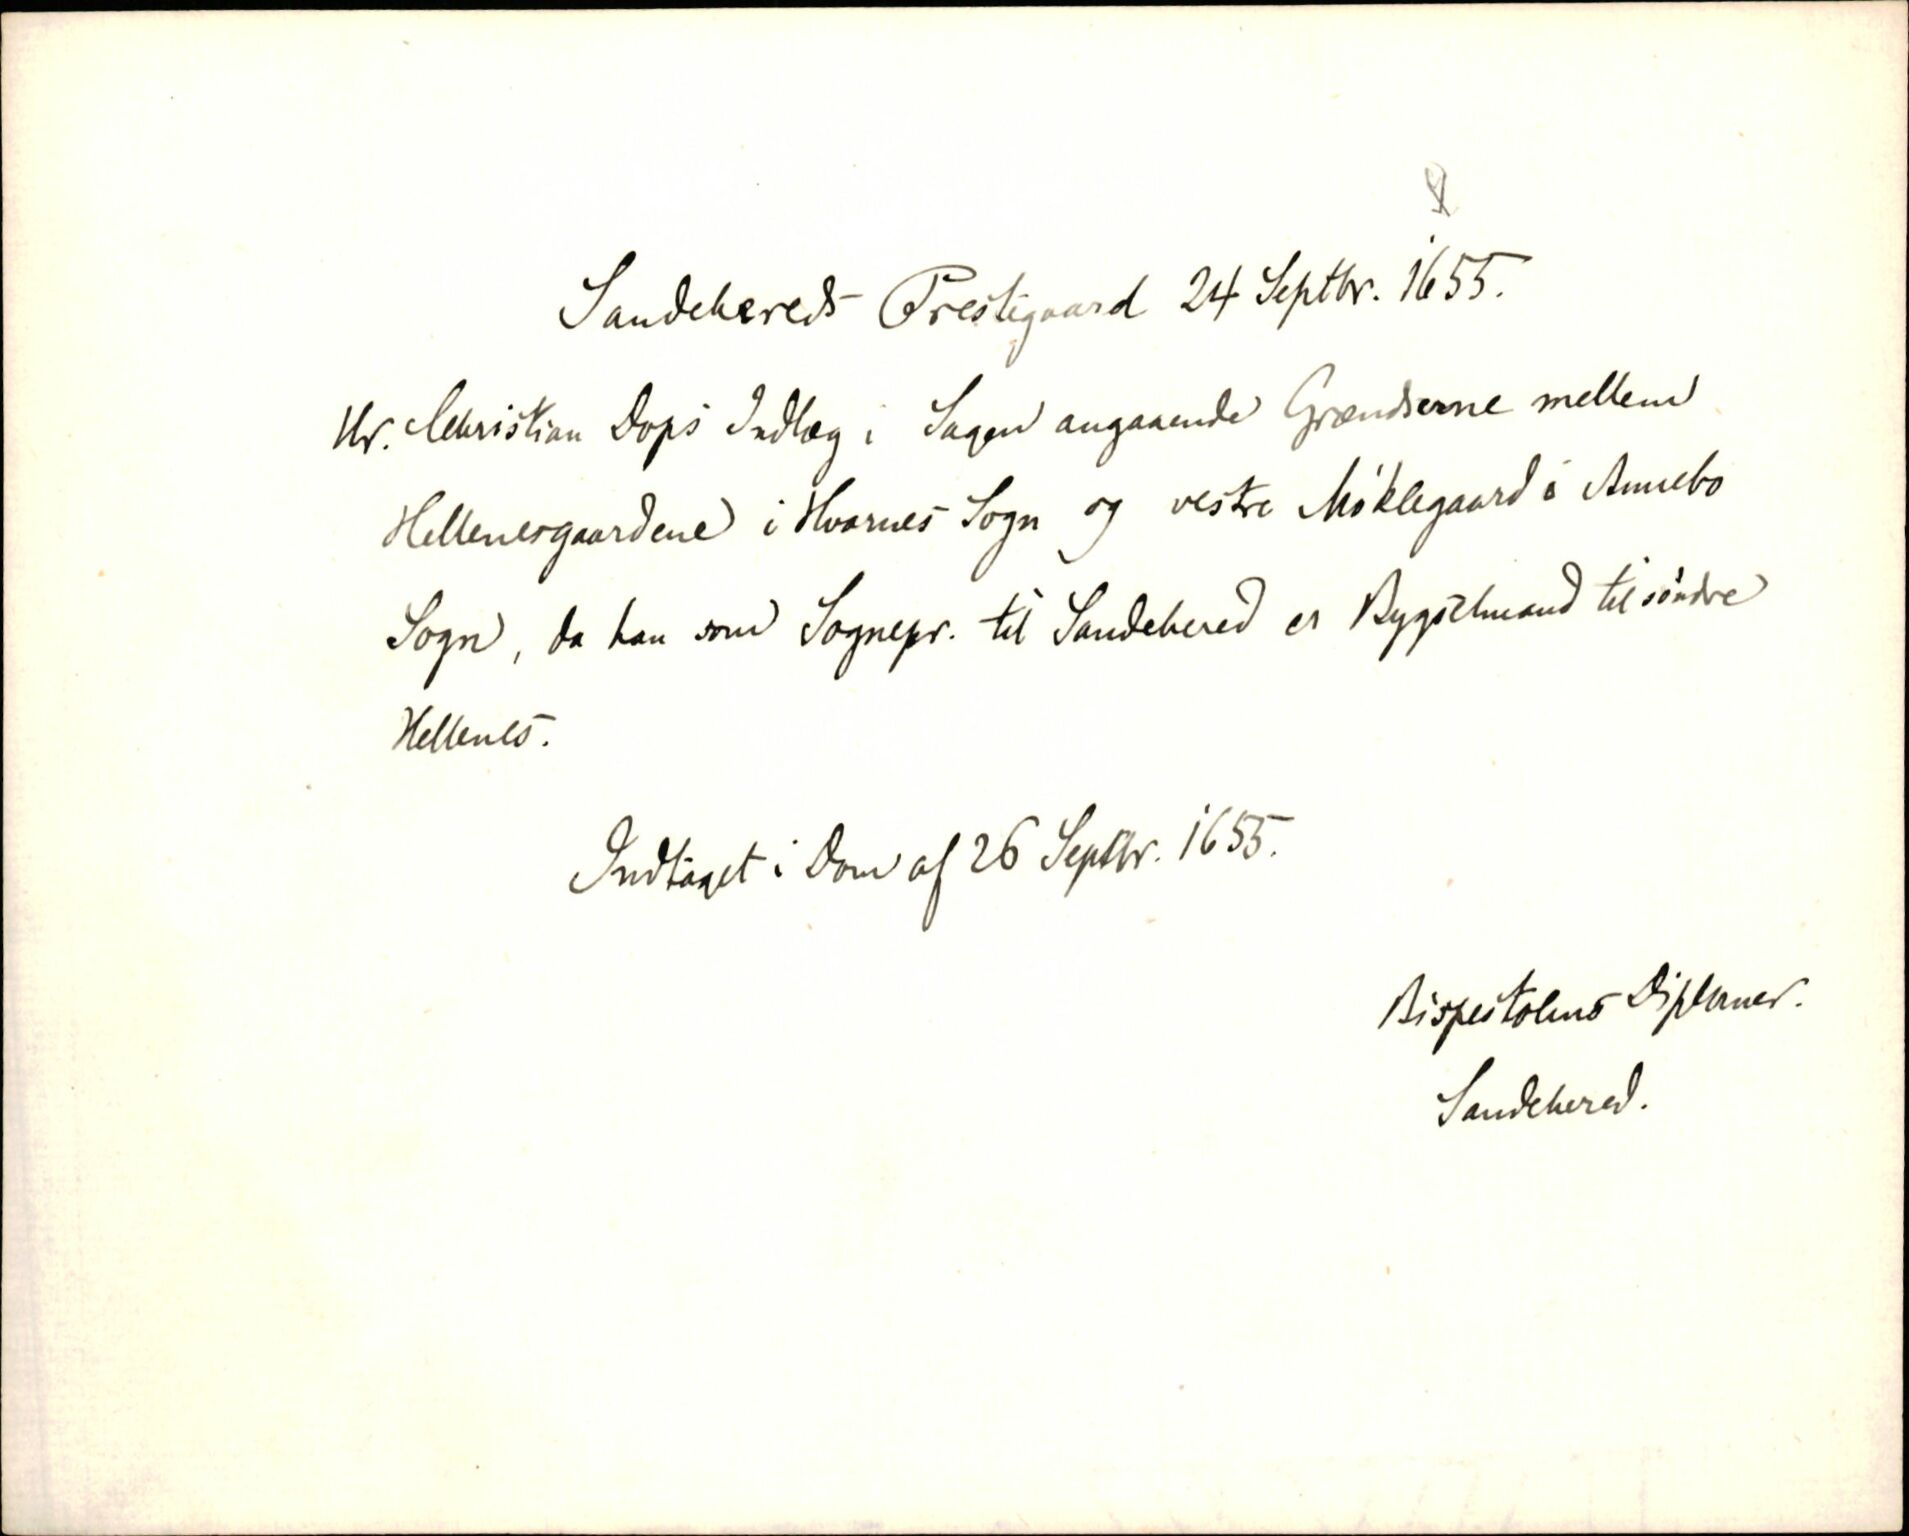 Sandehereds Prestegaard 24 Septbr. 1655.
Hr. Christian Dops Indlæg i Sagen angaaende Grændserne mellem
Hellenesgaardene i Hvarnes Sogn og vestre Møklegaard i Annebo
Sogn, da han som Sognepr. til Sandehered er Bygselmand til søndre
Hellenes.
Indtaget i Dom af 26 Septbr. 1655.
Bispestolens Diplomer.
Sandehered.